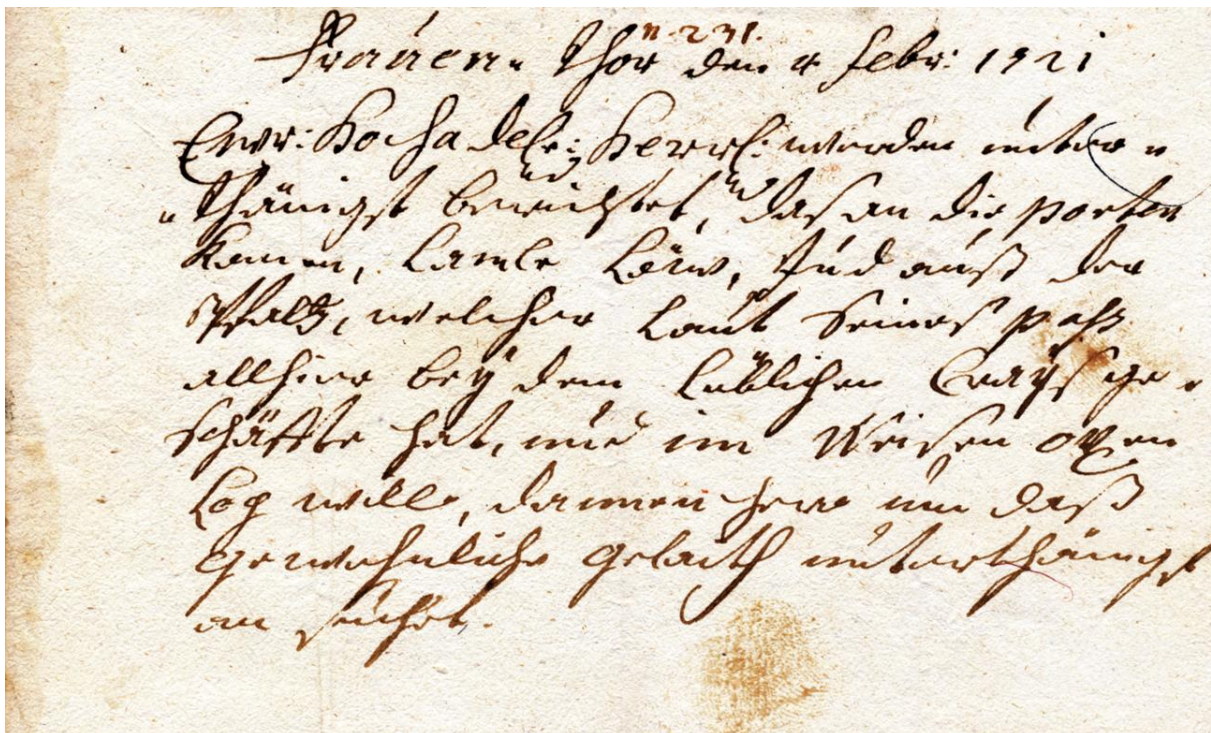 n. 231.
Frauen- Thor den 4 Febr: 1721
Ewr: HochAdele: Herrl: werden unter-
-thänigst berichtet, daß an die porten
Kamen, Lämle Löw, Jud auß der
Pfaltz, welcher Laut Seines paß
allhier beÿ dem Löblichen Craÿß ge-
schäffte hat, und im Weisen oxen
Log will, dannen hero um daß
gewohnliche gelaith unterthänigst
an suchet.